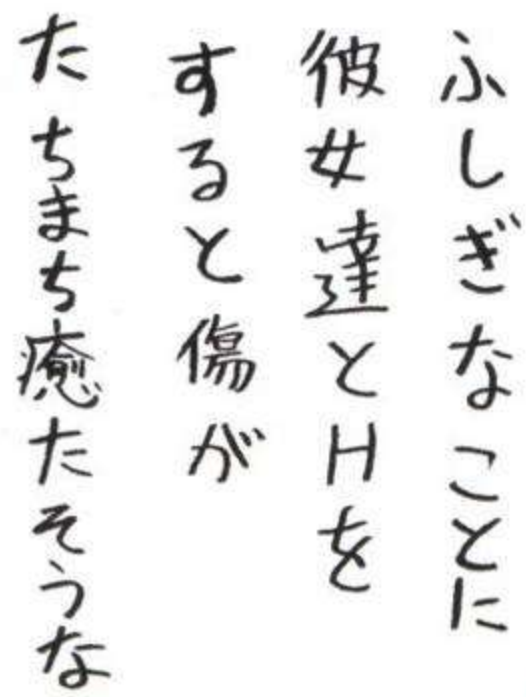 ふしぎなことに
彼女達とHを
すると傷が
たちまち癒たそうな